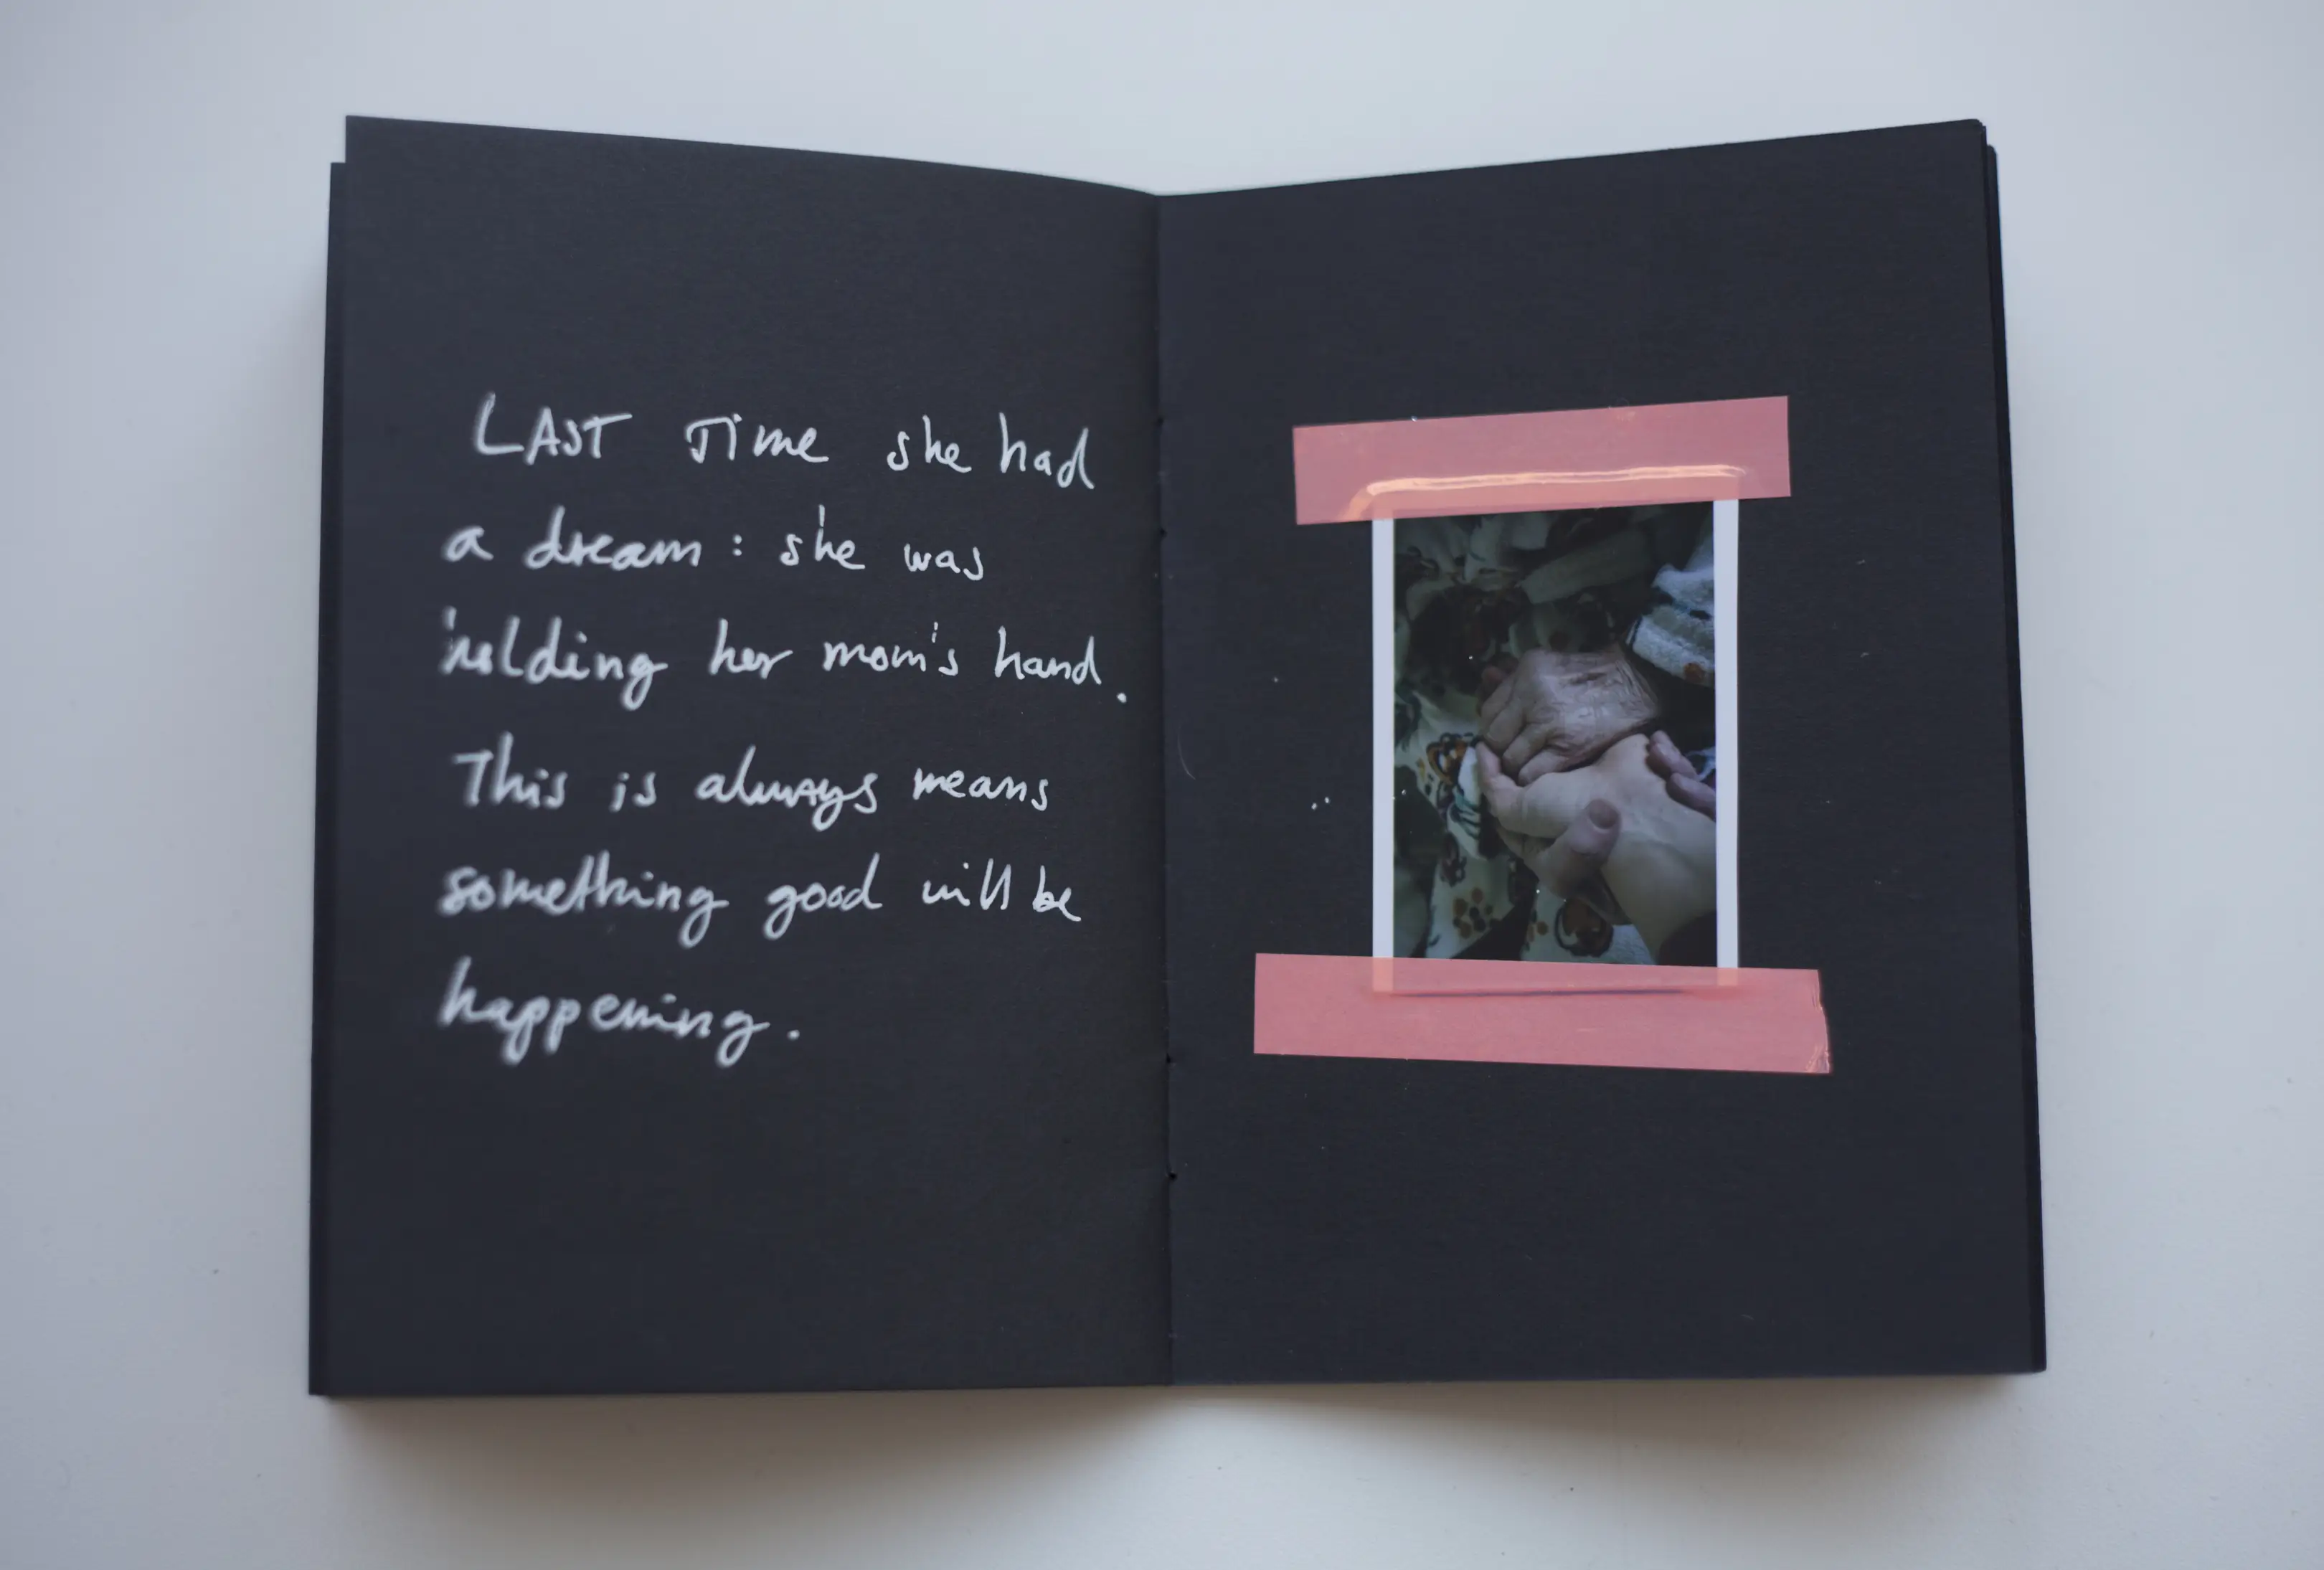 LAST Time she had
a dream: she was
holding her mom's hand.
This is always means
something good will be
happening.